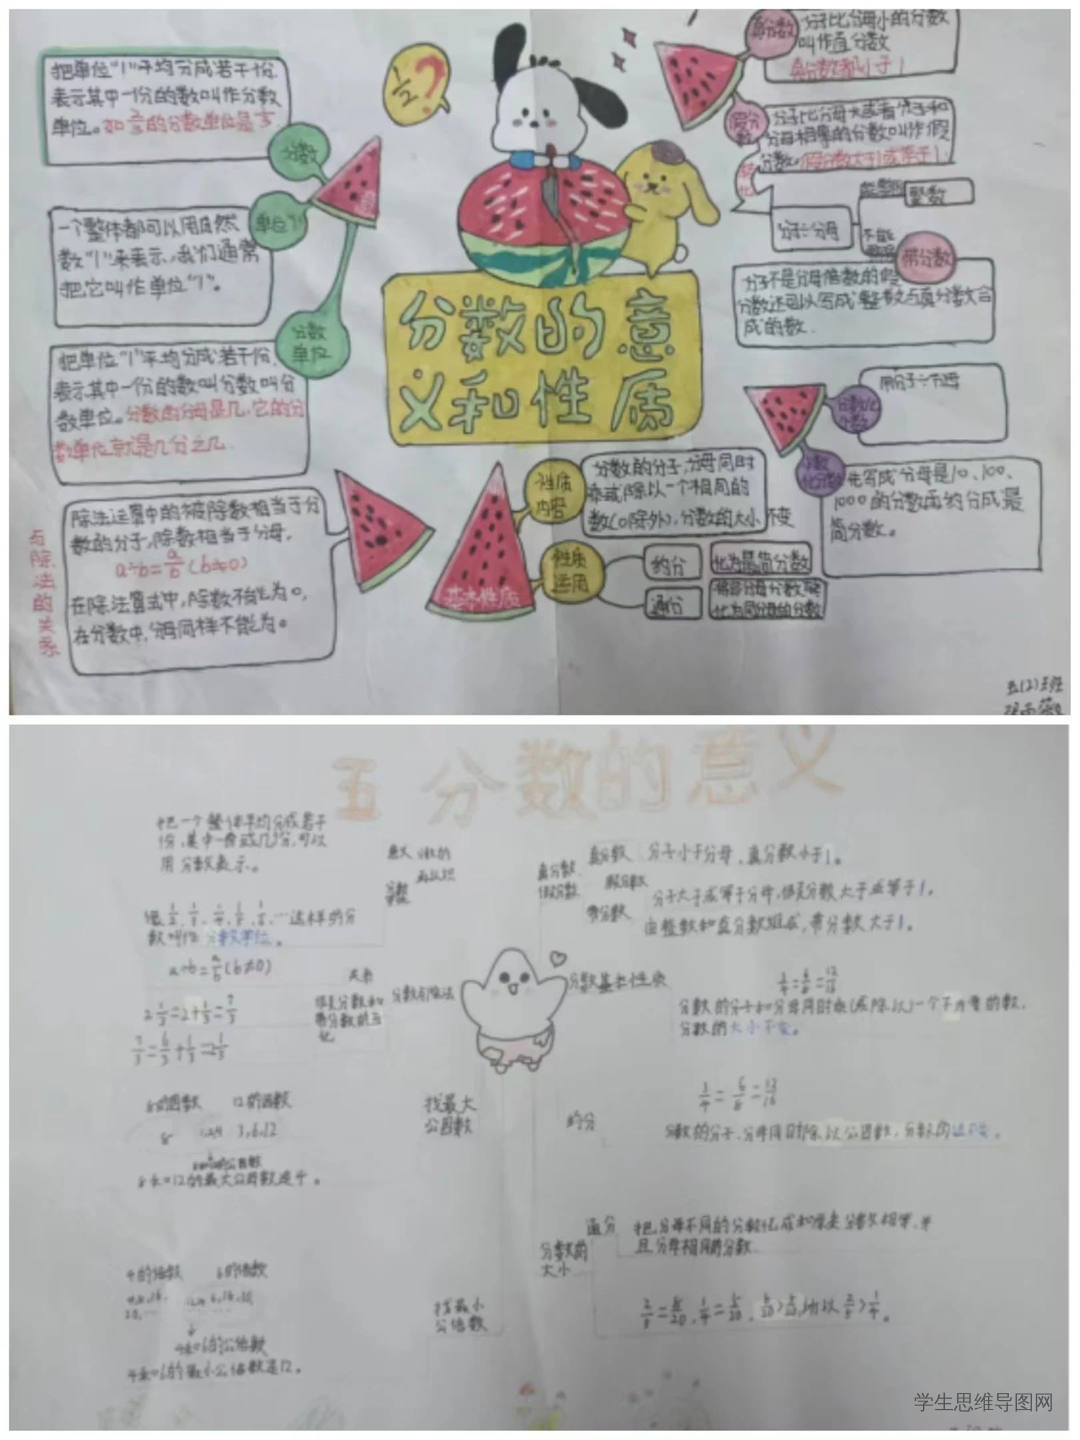 把单位"1"平均分成若干份,
表示其中一份的数叫作分数
单位。如
的分数单位是
分数
一个整体都可以用自然
数"1"来表示,我们通常
把它叫作单位"1"。
单位"1"
把单位"1"平均分成若干份,
表示其中一份的数叫分数叫分
数单位。分数的分母是几,它的分
数单位就是几分之几.
分数
单位
与除法的关系
除法运算中的被除数相当于分
数的分子,除数相当于分母,
a÷b=a/b(b≠0)
在除法算式中,除数不能为0,
在分数中,分母同样不能为0。
1/2?
分数的意
义和性质
真分数
分子比分母小的分数
叫作真分数
真分数都小于1
假分数
分子比分母大或者分子和
分母相等的分数叫作假
分数。假分数大于1或等于1.
分子÷分母
整数
不能
带分数
分子不是分母倍数的假
分数还可以写成整数与真分数合
成的数.
用分子÷分母
先写成分母是10、100、
1000的分数再约分成最
简分数。
基本性质
性质
内容
分数的分子,分母同时
乘或除以一个相同的
数(0除外),分数的大小不变
性质
运用
约分
化为最简分数
通分
化为同分母的分数
五(2)班
五 分数的意义
把一个整体平均分成若干
份,其中一份或几份,可以
用分数表示。
意义
分数的
再认识
像1/2、1/3、1/4、1/5、……这样的分
数叫作分数单位。
a÷b=a/b(b≠0)
关系
分数与除法
2 1/3=2+1/3=7/3
7/3=6/3+1/3=2 1/3
假分数和
带分数的互
化
8的因数 12的因数
8
1,2,4 3,6,12
8和12的公因数
8和12的最大公因数是4。
找最大
公因数
4的倍数 6的倍数
4和6的公倍数
4和6的最小公倍数是12。
找最小
公倍数
真分数
假分数
真分数 分子小于分母,真分数小于1。
假分数
分子大于或等于分母,假分数大于或等于1。
带分数
由整数和真分数组成,带分数大于1。
分数基本性质
3/4=6/8=12/16
分数的分子和分母同时乘(或除以)一个不为零的数,
分数的大小不变。
约分
3/4=6/8=12/16
分数的大小
通分
把分母不同的分数化成和原来分数相等,并
且分母相同的分数.
所以2/5>1/4。
学生思维导图网